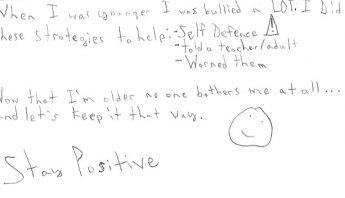 When I was younger I was bullied a LOT. I Did
hese strategies to help:-Self Defence
-told a teacher/adult
-Warned them
Now that I'm older no one bothers me at all...
and let's keep it that way.
Stay Positive